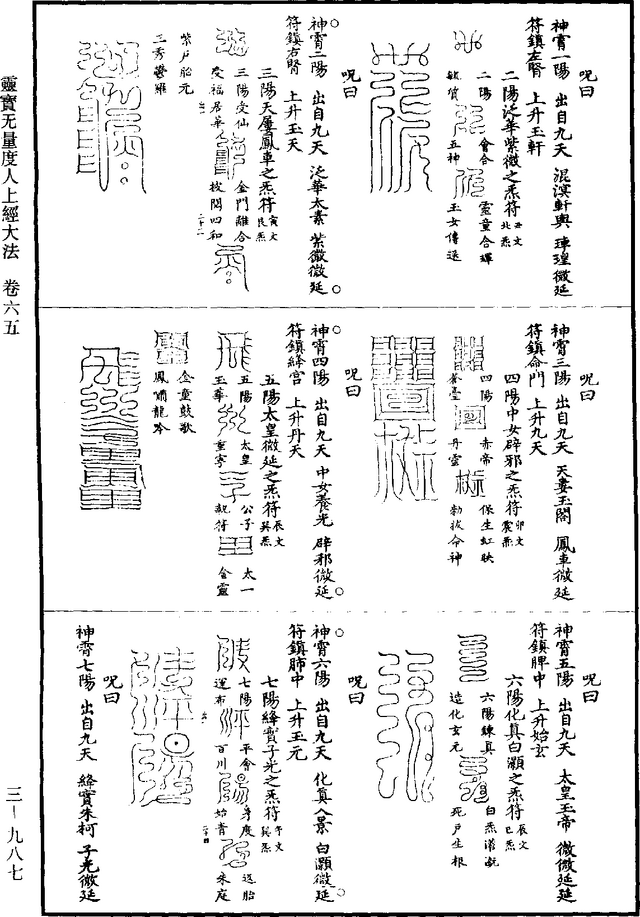 呪曰
神霄一陽 出自九天 混溟軒輿 琿瑝微延
符鎮左腎 上升玉軒
二陽泛華紫微之炁符 丑文 北炁
二陽 會合 靈童合暉
敏質 五神 玉女傳送
呪曰
神霄二陽 出自九天 泛華太素 紫微微延
符鎮右腎 上升玉天
三陽天屢鳳車之炁符 寅文 艮炁
三陽交仙 金門離合
受福居華 披閱四和
二十二
紫戶胎元
三秀鬱羅
呪曰
神霄三陽 出自九天 天婁玉閣 鳳車微延
符鎮命門 上升九天
四陽中女辟邪之炁符 卯文 震炁
四陽 赤帝 保生紅映
丹靈 勑拔命神
呪曰
神霄四陽 出自九天 中女養光 辟邪微延
符鎮絳宮 上升丹天
五陽太皇微延之炁符 辰文 巽炁
五陽 太皇 公子 太一
玉華 重寧 親符 合靈
金童鼓歌
鳳嘯龍吟
呪曰
神霄五陽 出自九天 太皇玉帝 微微延延
符鎮脾中 上升始玄
六陽化真白灝之炁符 辰文 巳炁
六陽練真 白炁灌溉
造化玄元 死戶生根
呪曰
神霄六陽 出自九天 化真入景 白灝微延
符鎮肺中 上升玉元
七陽絳實子光之炁符 午文 巽炁
七陽 平會 身度 返胎
運布 百川 始青 朱庭
二十四
呪曰
神霄七陽 出自九天 絳實朱柯 子光微延
靈寶无量度人上經大法 卷六五
三—九八七